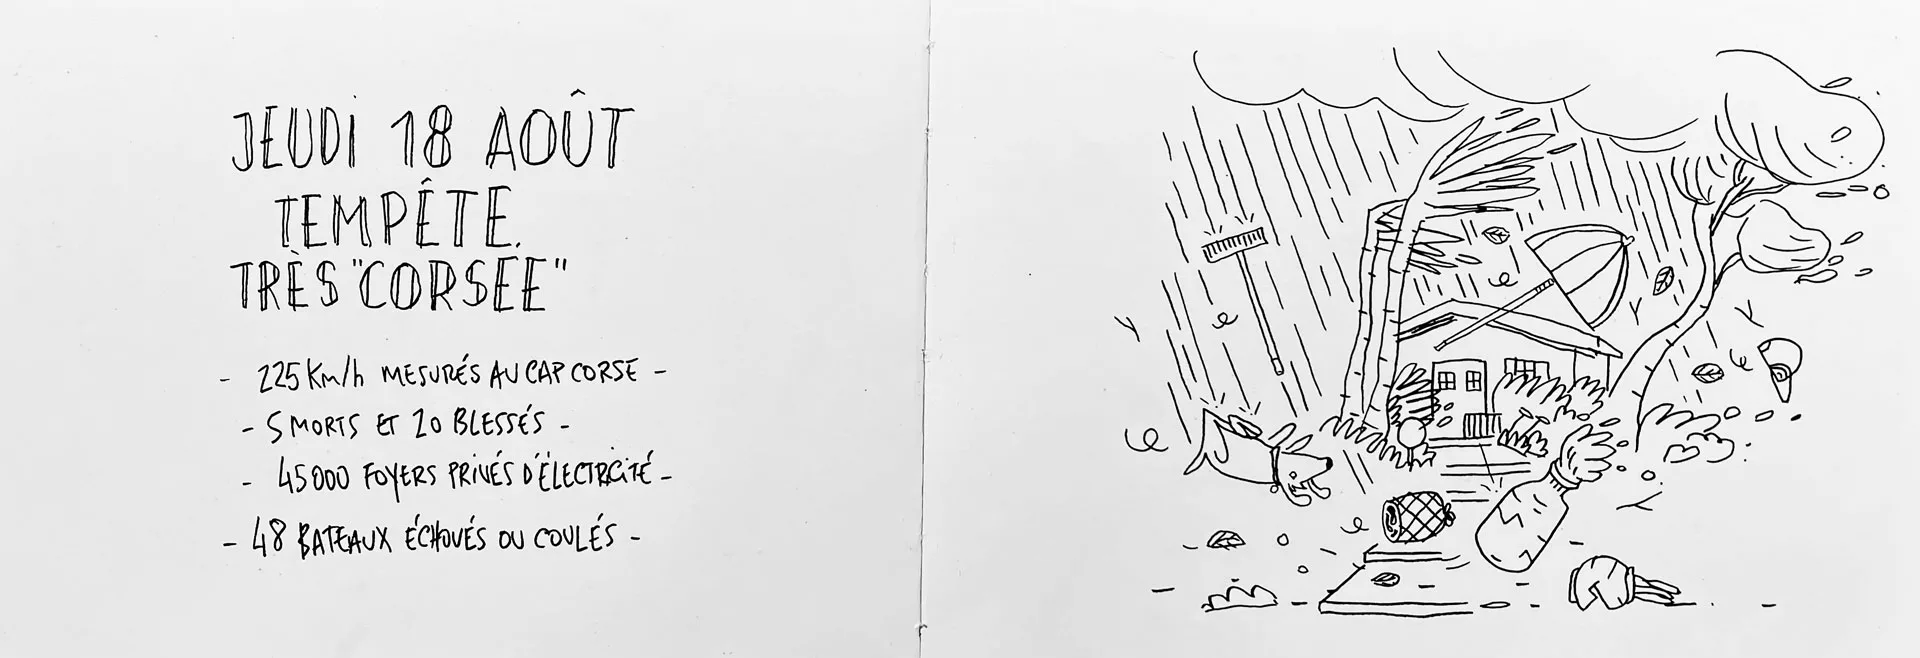 JEUDI 18 AOÛT
TEMPÊTE.
TRÈS "CORSEE"
- 225 Km/h MESURÉS AU CAP CORSE -
- 5 MORTS ET 20 BLESSÉS -
- 45000 FOYERS PRIVÉS D'ÉLECTRICITÉ -
- 48 BATEAUX ÉCHOUÉS OU COULÉS -